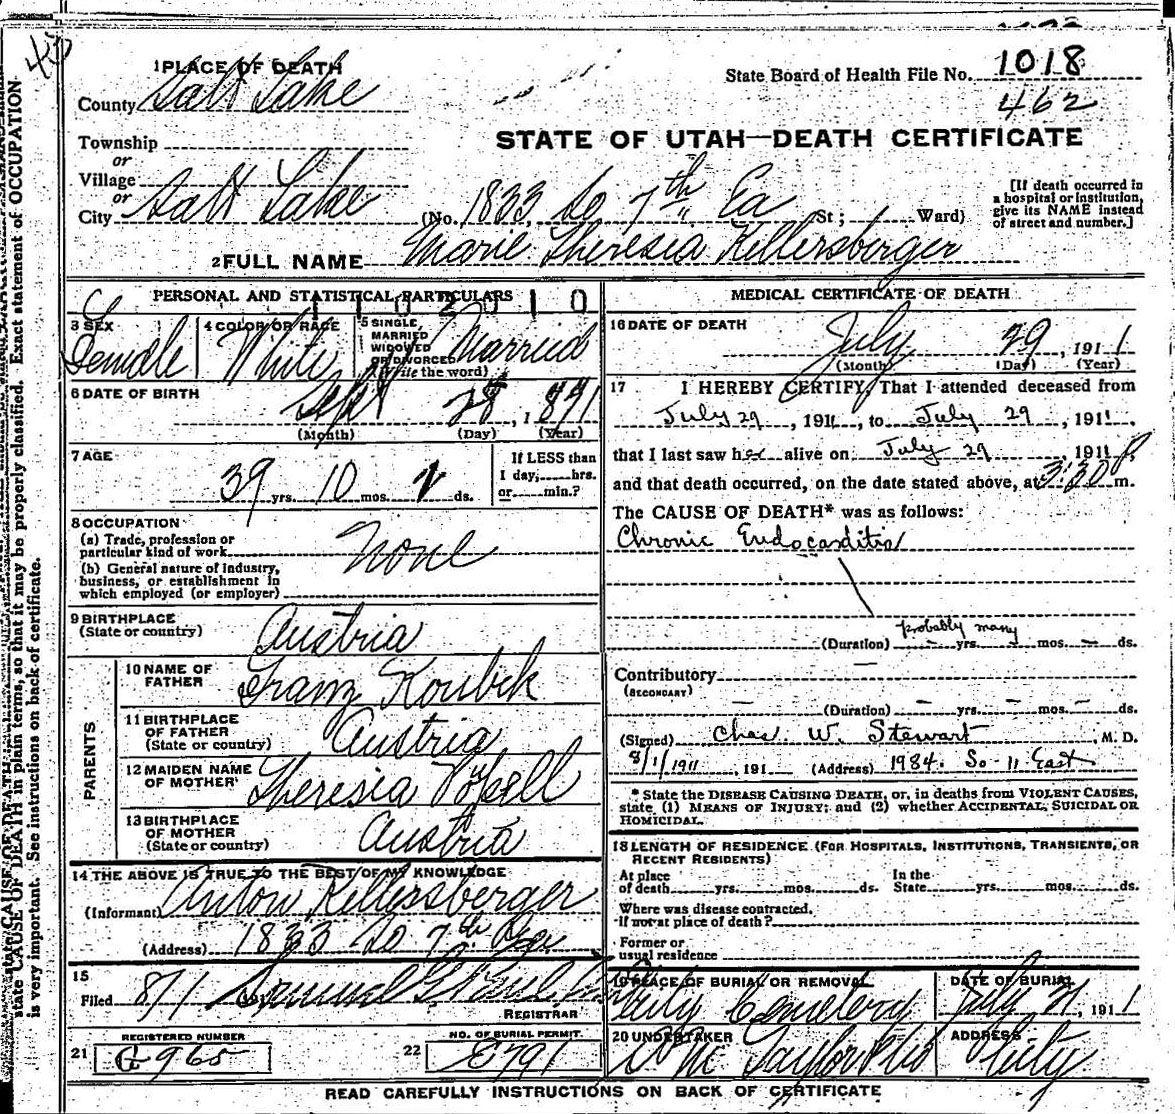 1 PLACE OF DEATH
County Salt Lake
State Board of Health File No. 1018
462
Township
or
Village
or
City Salt Lake
STATE OF UTAH—DEATH CERTIFICATE
(No. 1833 So 7th Ea St; Ward)
[If death occurred in
a hospital or institution,
give its NAME instead
of street and number.]
2 FULL NAME Marie Theresia Killersberger
PERSONAL AND STATISTICAL PARTICULARS
1102010
3 SEX Female
4 COLOR OR RACE White
5 SINGLE,
MARRIED
WIDOWED
OR DIVORCED
(Write the word) Married
6 DATE OF BIRTH Sept 28, 1871
(Month) (Day) (Year)
7 AGE
39 yrs. 10 mos. ds.
If LESS than
1 day, hrs.
or min.?
8 OCCUPATION
(a) Trade, profession or
particular kind of work None
(b) General nature of industry,
business, or establishment in
which employed (or employer)
9 BIRTHPLACE
(State or country) Austria
PARENTS
10 NAME OF
FATHER Franz Koubek
11 BIRTHPLACE
OF FATHER
(State or country) Austria
12 MAIDEN NAME
OF MOTHER Theresia
13 BIRTHPLACE
OF MOTHER
(State or country) Austria
14 THE ABOVE IS TRUE TO THE BEST OF MY KNOWLEDGE
(Informant) Anton Killersberger
(Address) 1833 So 7th
15
Filed 8/1 Samuel G.
REGISTRAR
REGISTERED NUMBER
21 G 965
NO. OF BURIAL PERMIT.
22 E791
MEDICAL CERTIFICATE OF DEATH
16 DATE OF DEATH
July 29, 1911
(Month) (Day) (Year)
17 I HEREBY CERTIFY, That I attended deceased from
July 29, 1911, to July 29, 1911,
that I last saw her alive on July 29, 1911
and that death occurred, on the date stated above, at 3:30 P. m.
The CAUSE OF DEATH* was as follows:
Chronic Endocarditis
probably many
(Duration) – yrs. – mos. – ds.
Contributory –
(SECONDARY)
(Duration) – yrs. – mos. – ds.
(Signed) Chas. W. Stewart, M. D.
8/1/1911, 191 (Address) 1984. So-11 East
* State the DISEASE CAUSING DEATH, or, in deaths from VIOLENT CAUSES,
state (1) MEANS OF INJURY; and (2) whether ACCIDENTAL, SUICIDAL OR
HOMICIDAL.
18 LENGTH OF RESIDENCE (FOR HOSPITALS, INSTITUTIONS, TRANSIENTS, OR
RECENT RESIDENTS)
At place
of death yrs. mos. ds.
In the
State yrs. mos. ds.
Where was disease contracted,
if not at place of death?
Former or
usual residence
19 PLACE OF BURIAL OR REMOVAL
City Cemetery
DATE OF BURIAL
July 31, 1911
20 UNDERTAKER
Taylor & Co
ADDRESS
City
READ CAREFULLY INSTRUCTIONS ON BACK OF CERTIFICATE
state CAUSE OF DEATH in plain terms, so that it may be properly classified. Exact statement of OCCUPATION
is very important. See instructions on back of certificate.